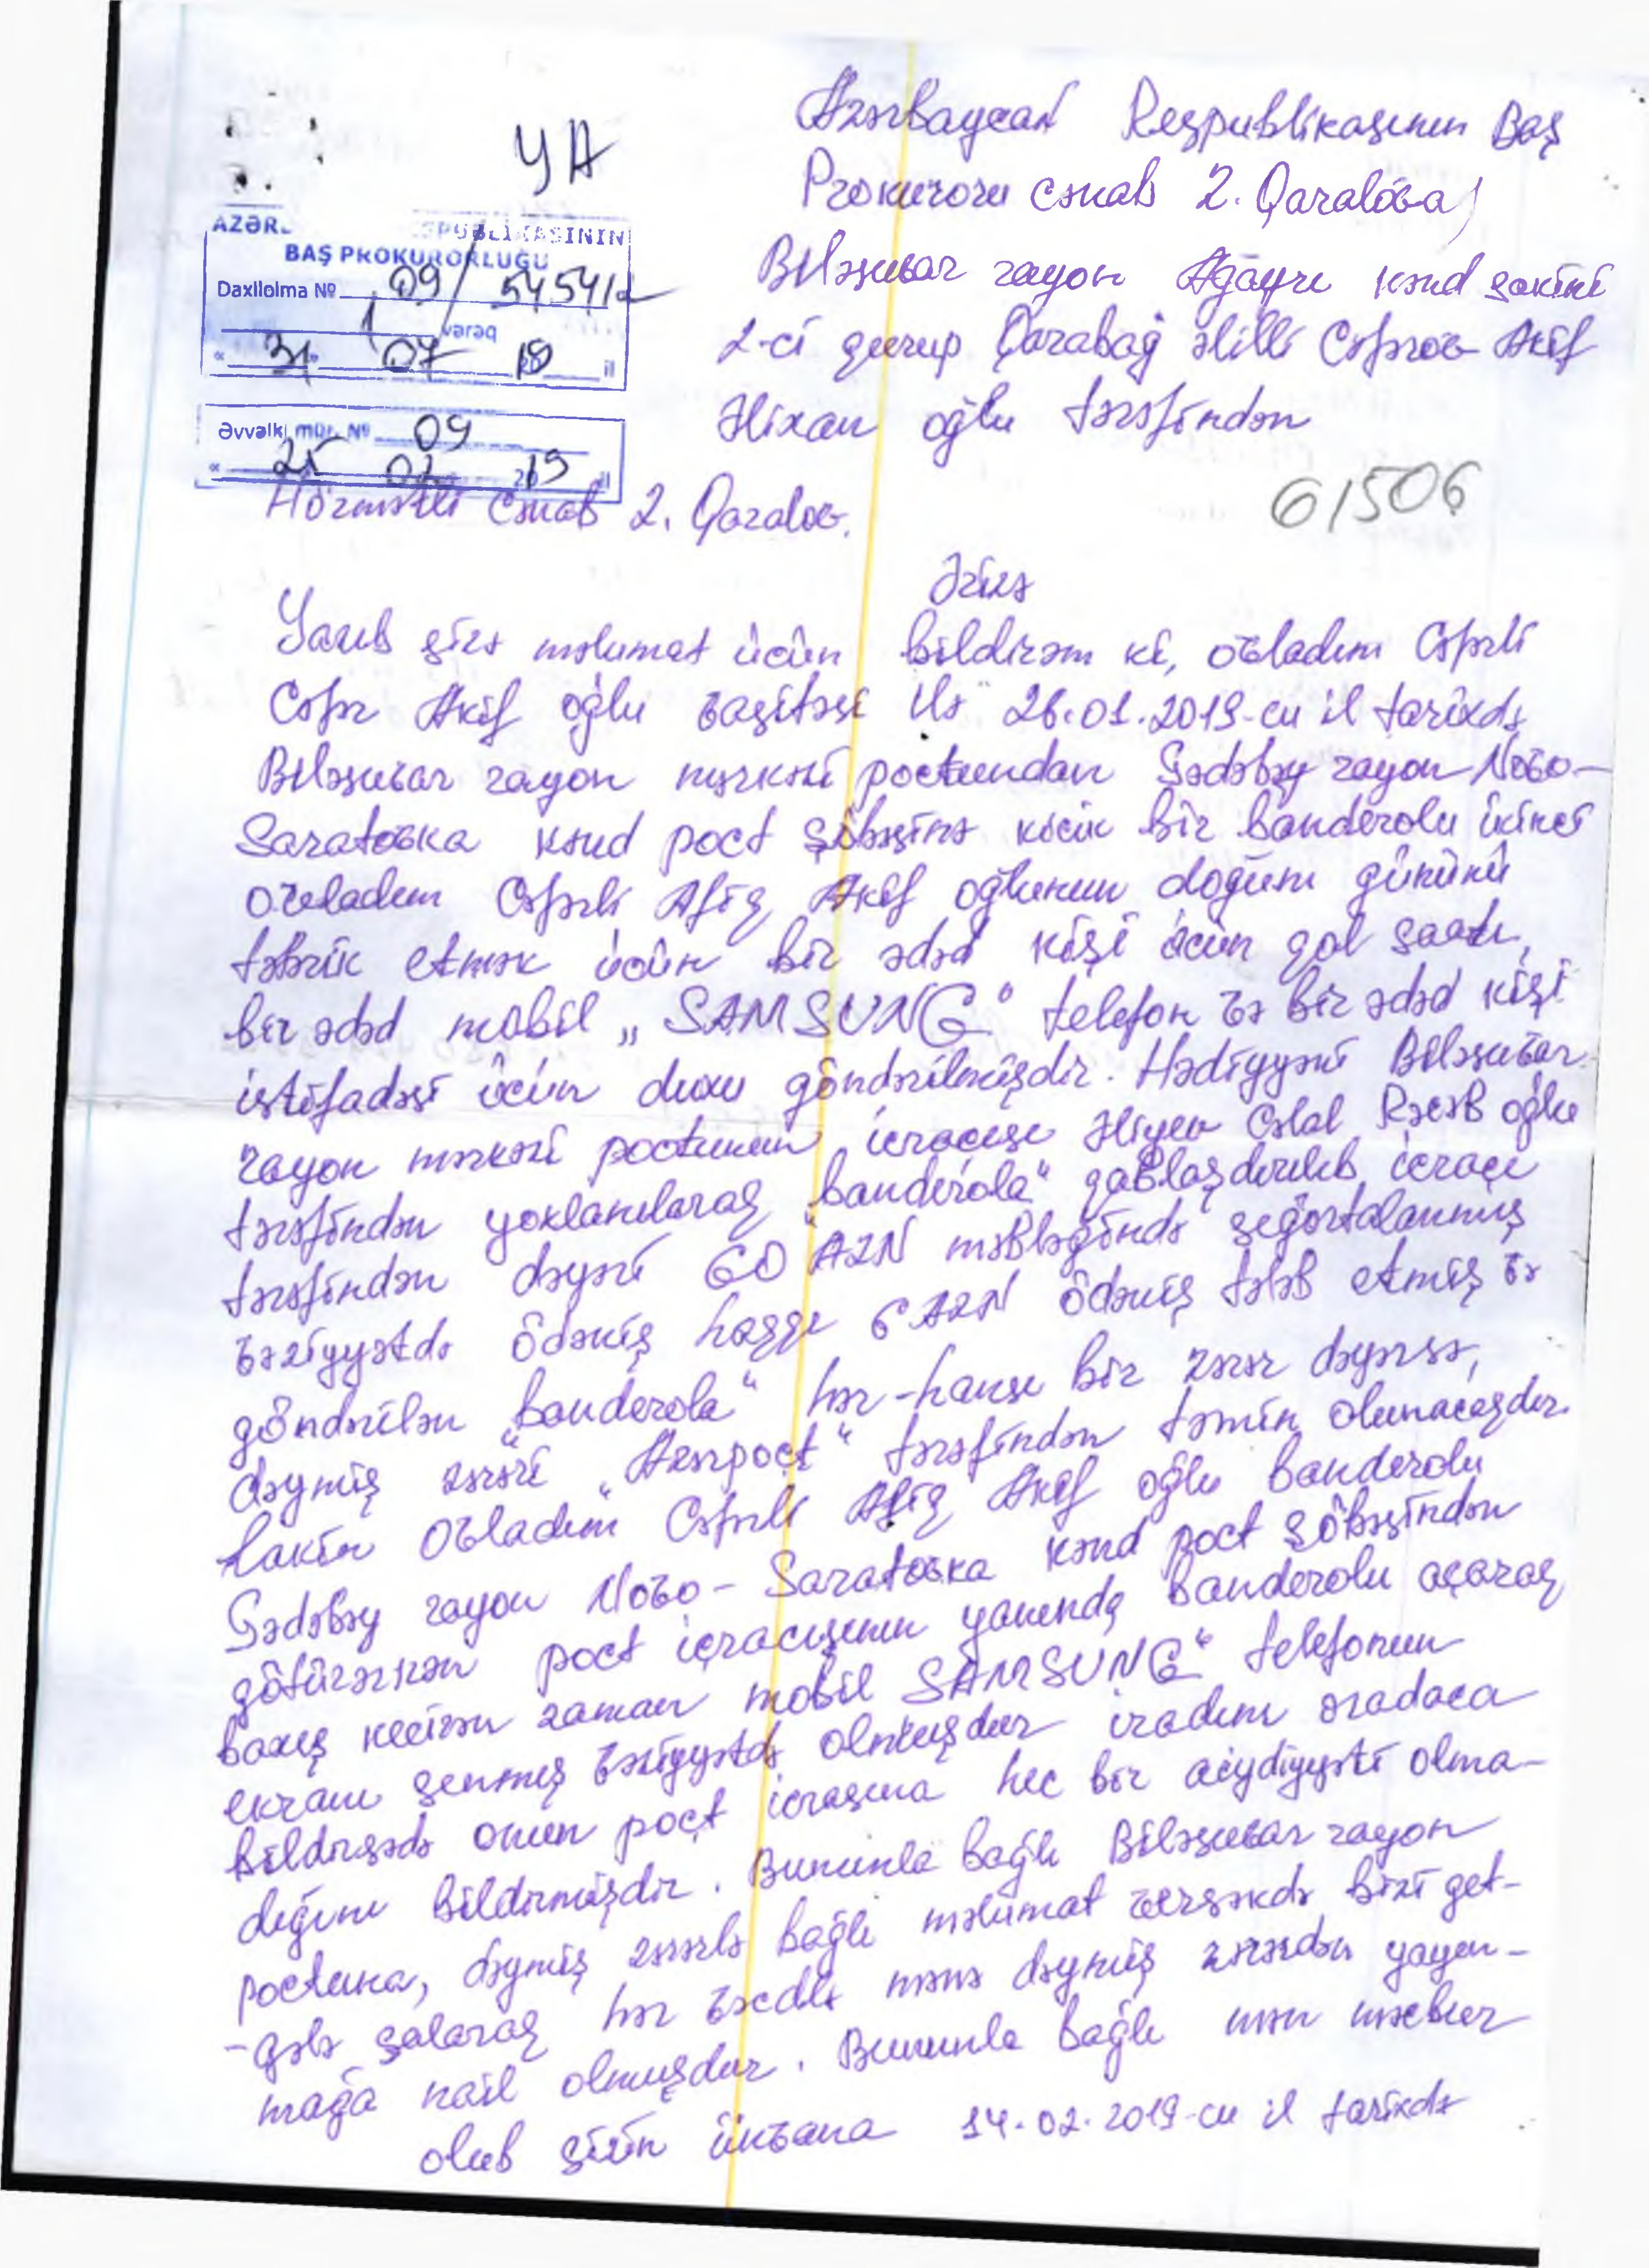 Azərbaycan Respublikasının Baş
Prokuroru cənab Z. Qaralova
YA
AZƏR SPUBLİKASININ
BAŞ PROKURORLUĞU
Daxilolma № 09/
vərəq
« 31 » 07 il
Əvvəlki mür. № 09
« » 2019 il
Biləsuvar rayon Ağayrı kənd sakini
2-ci qurup Qarabağ əlilli Cəfərov Akif
Əlixan oğlu tərəfindən
61506
Hörmətli Cənab Z. Qaralov.
Ərizə
Yazıb sizə məlumat üçün bildirəm ki, övladım Cəfərli
Cəfər Akif oğlu vasitəsi ilə 26.01.2019-cu il tarixdə
Biləsuvar rayon mərkəzi poctundan Gədəbəy rayon Novo-
Saratovka kənd poct şöbəsinə kicik bir banderolu ikinci
övladım Cəfərli Afiq Akif oğlunun doğum gününü
təbrik etmək üçün bir ədəd kişi üçün qol saatı,
bir ədəd mobil „SAMSUNG" telefon və bir ədəd kişi
istifadəsi üçün duxu göndərilmişdir. Hədiyyəni Biləsuvar
rayon mərkəzi poctunun icraçısı Əliyev Cəlal Rəcəb oğlu
tərəfindən yoxlanılaraq „banderola" qablaşdırılıb icraçı
tərəfindən dəyəri 60 AZN məbləğində sığortalanmış
vəziyyətdə ödəniş haqqı 6 AZN ödəniş tələb etmiş və
göndərilən „banderola" hər-hansı bir zərər dəyərsə,
dəymiş zərəri „Azərpoçt" tərəfindən təmin olunacaqdır.
Lakin övladım Cəfərli Afiq Akif oğlu banderolu
Gədəbəy rayon Novo-Saratovka kənd poct şöbəsindən
götürərkən poct icraçısının yanında banderolu açaraq
baxış kecirən zaman mobil SAMSUNG" telefonun
ekranı sınmış vəziyyətdə olmuşdur iradını oradaca
bildirsədə onun poçt icrasına hec bir aiydiyyəti olma-
dığını bildirmişdir. Bununla bağlı Biləsuvar rayon
poctuna, dəymiş zərərlə bağlı məlumat versəkdə bizi get-
-gələ salaraq hər vəcdlə mənə dəymiş zərərdən yayın-
mağa nail olmuşdur. Bununla bağlı mən məcbur
olub sizin ünvana 14.02.2019-cu il tarixdə